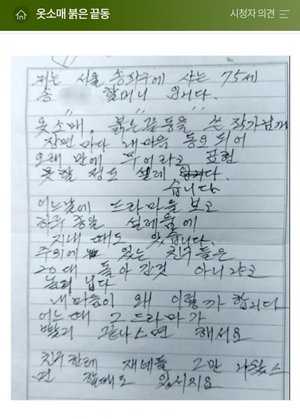 옷소매 붉은 끝동
시청자 의견
No
저는 서울 송파구에 사는 75세
송 할머니 입니다.
옷소매. 붉은끝동을 쓴 작가님께
장면 마다 내마음 동요 되어
오래 만에 무어라고 표현
못할 정도 설레 습니다
어느날에 드라마을 보고
하루 종일 설레음에
지내 때도 있습니다.
주위에 있는 친구들은
20대 돌아간것 아니냐고
놀려 닙다
내마음이 왜 이럴가 합니다
어느때 그 드라마가
빨리 끝나스면 해서요
친구한테 재네들 그만 나왔스
면 할때도 있서지요